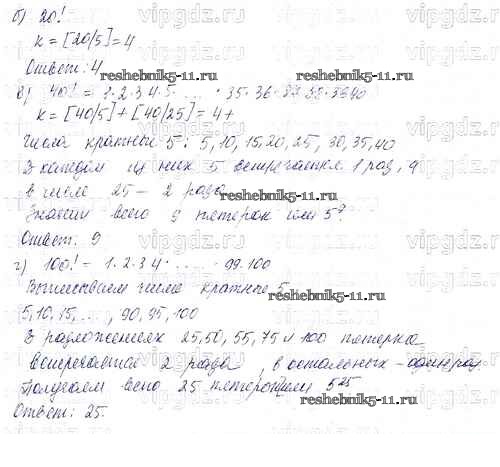 б) 20!
k = [20/5] = 4
Ответ: 4
reshebnik5-11.ru
в) 40! = 1·2·3·4·5· ... · 35·36·37·38·39·40
k = [40/5] + [40/25] = 4+
Числа кратные 5: 5, 10, 15, 20, 25, 30, 35, 40
В каждом из них 5 встречается 1 раз, а
в числе 25 – 2 раза
reshebnik5-11.ru
Значит всего 9 пятерок или 5⁹.
Ответ: 9
г) 100! = 1·2·3·4· ... · 99·100
Выписываем числа кратные 5
reshebnik5-11.ru
5, 10, 15, ..., 90, 95, 100
В разложениях 25, 50, 55, 75 и 100 пятерка
встречается 2 раза, в остальных – один раз.
Получаем всего 25 пятерок или 5²⁵
reshebnik5-11.ru
Ответ: 25.
vipgdz.ru